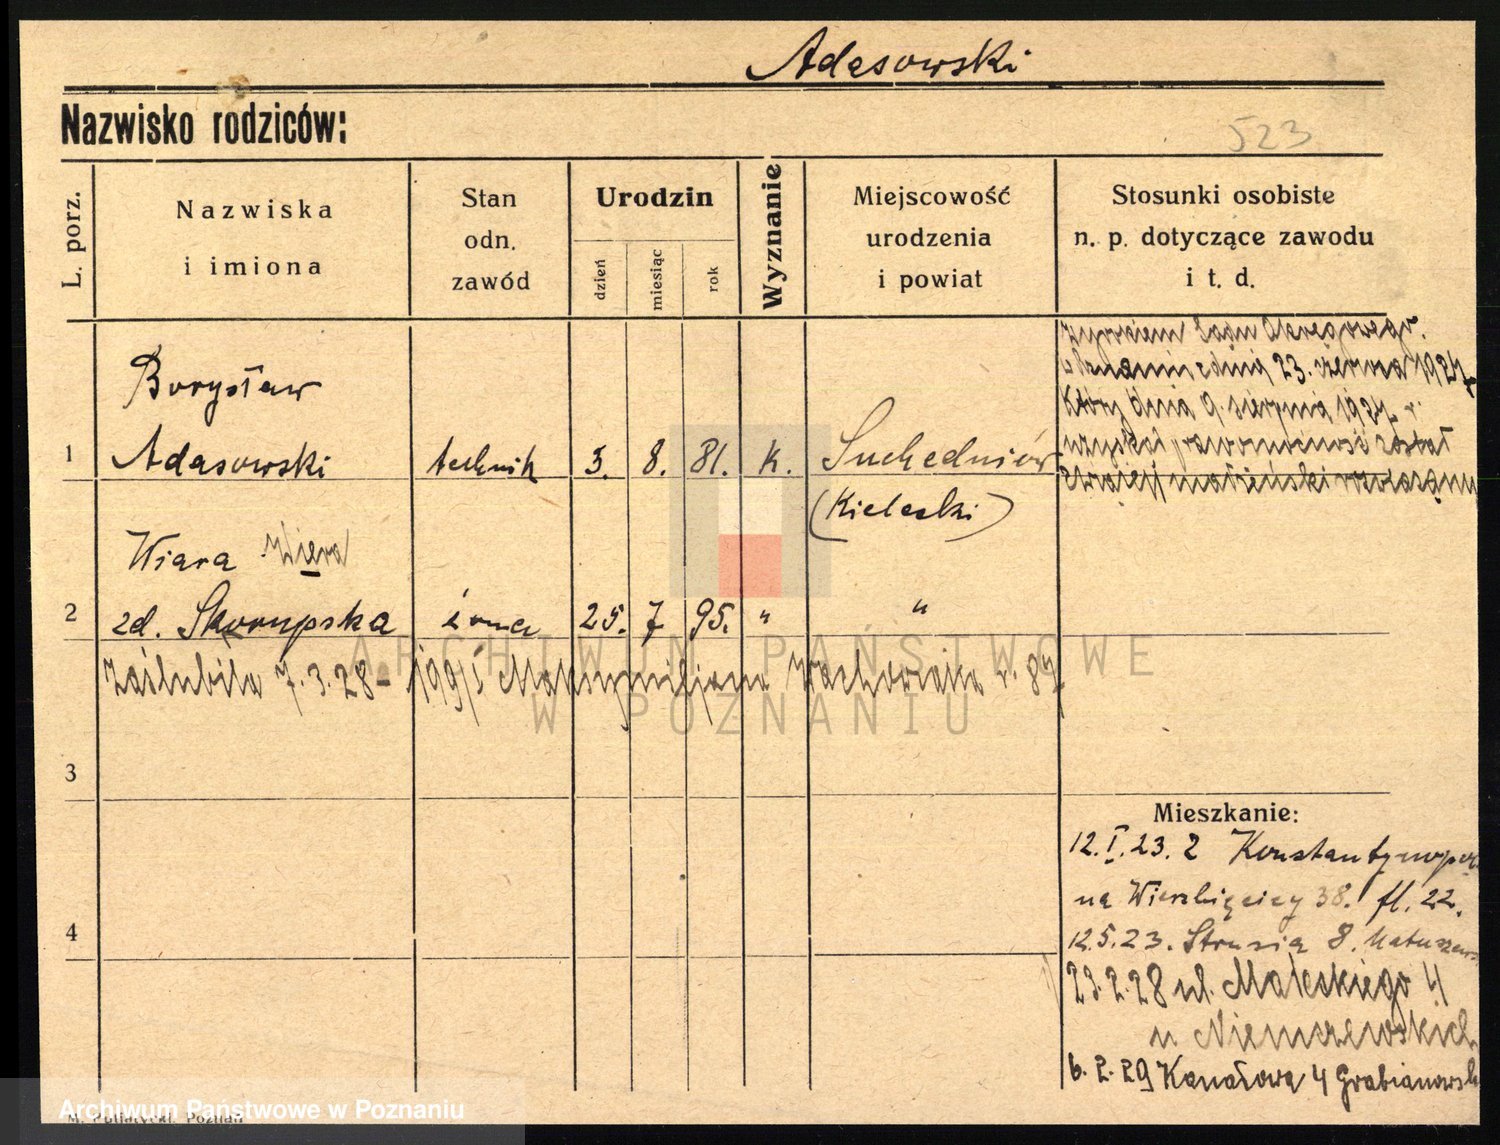 Adasowski
Nazwisko rodziców:
523
L. porz.
Nazwiska
i imiona
Stan
odn.
zawód
Urodzin
dzień
miesiąc
rok
Wyznanie
Miejscowość
urodzenia
i powiat
Stosunki osobiste
n. p. dotyczące zawodu
i t. d.
wyrokiem Sądu Okręgowego
z dnia 23. czerwca 1927
który dnia 9. sierpnia 1927 r.
uzyskał prawomocność został
małżeński rozwiązany
1
Borysław
Adasowski
technik
3.
8.
81.
K.
Suchedniów
(Kielecki)
2
Wiara Wiera
zd. Skorupska
żona
25.
7
95.
"
"
zaślubiła 7.3.28 - Maksymiljana Wachowiaka r. 89
ARCHIWUM PAŃSTWOWE
W POZNANIU
3
4
Mieszkanie:
12.I.23. 2 Konstantynopol
na Wierzbięcicy 38. fl. 22.
12.5.23. Strusia 8.
23.2.28 ul. Małeckiego 4
u Niemszewskich
6.2.29 Kanałowa 4 Grabianowsk
Archiwum Państwowe w Poznaniu
M. Putiatycki, Poznań